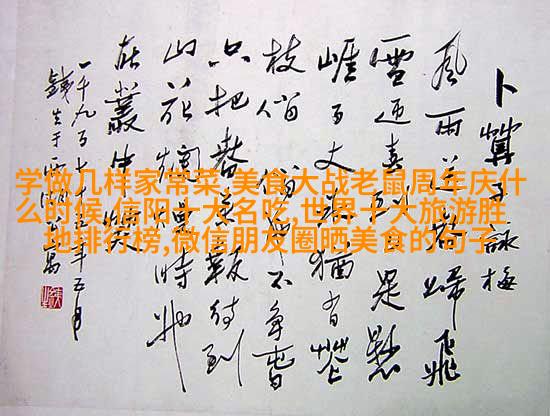 卜算子詠梅
風雨送春歸飛
雪迎春到已是懸
崖百丈冰猶有花
枝俏俏也不争春
只把春來報待到
山花爛漫時她
在叢中笑
一千九百七十年五月
学做几样家常菜,美食大战老鼠周年庆什
么时候,信阳十大名吃,世界十大旅游胜
地排行榜,微信朋友圈晒美食的句子